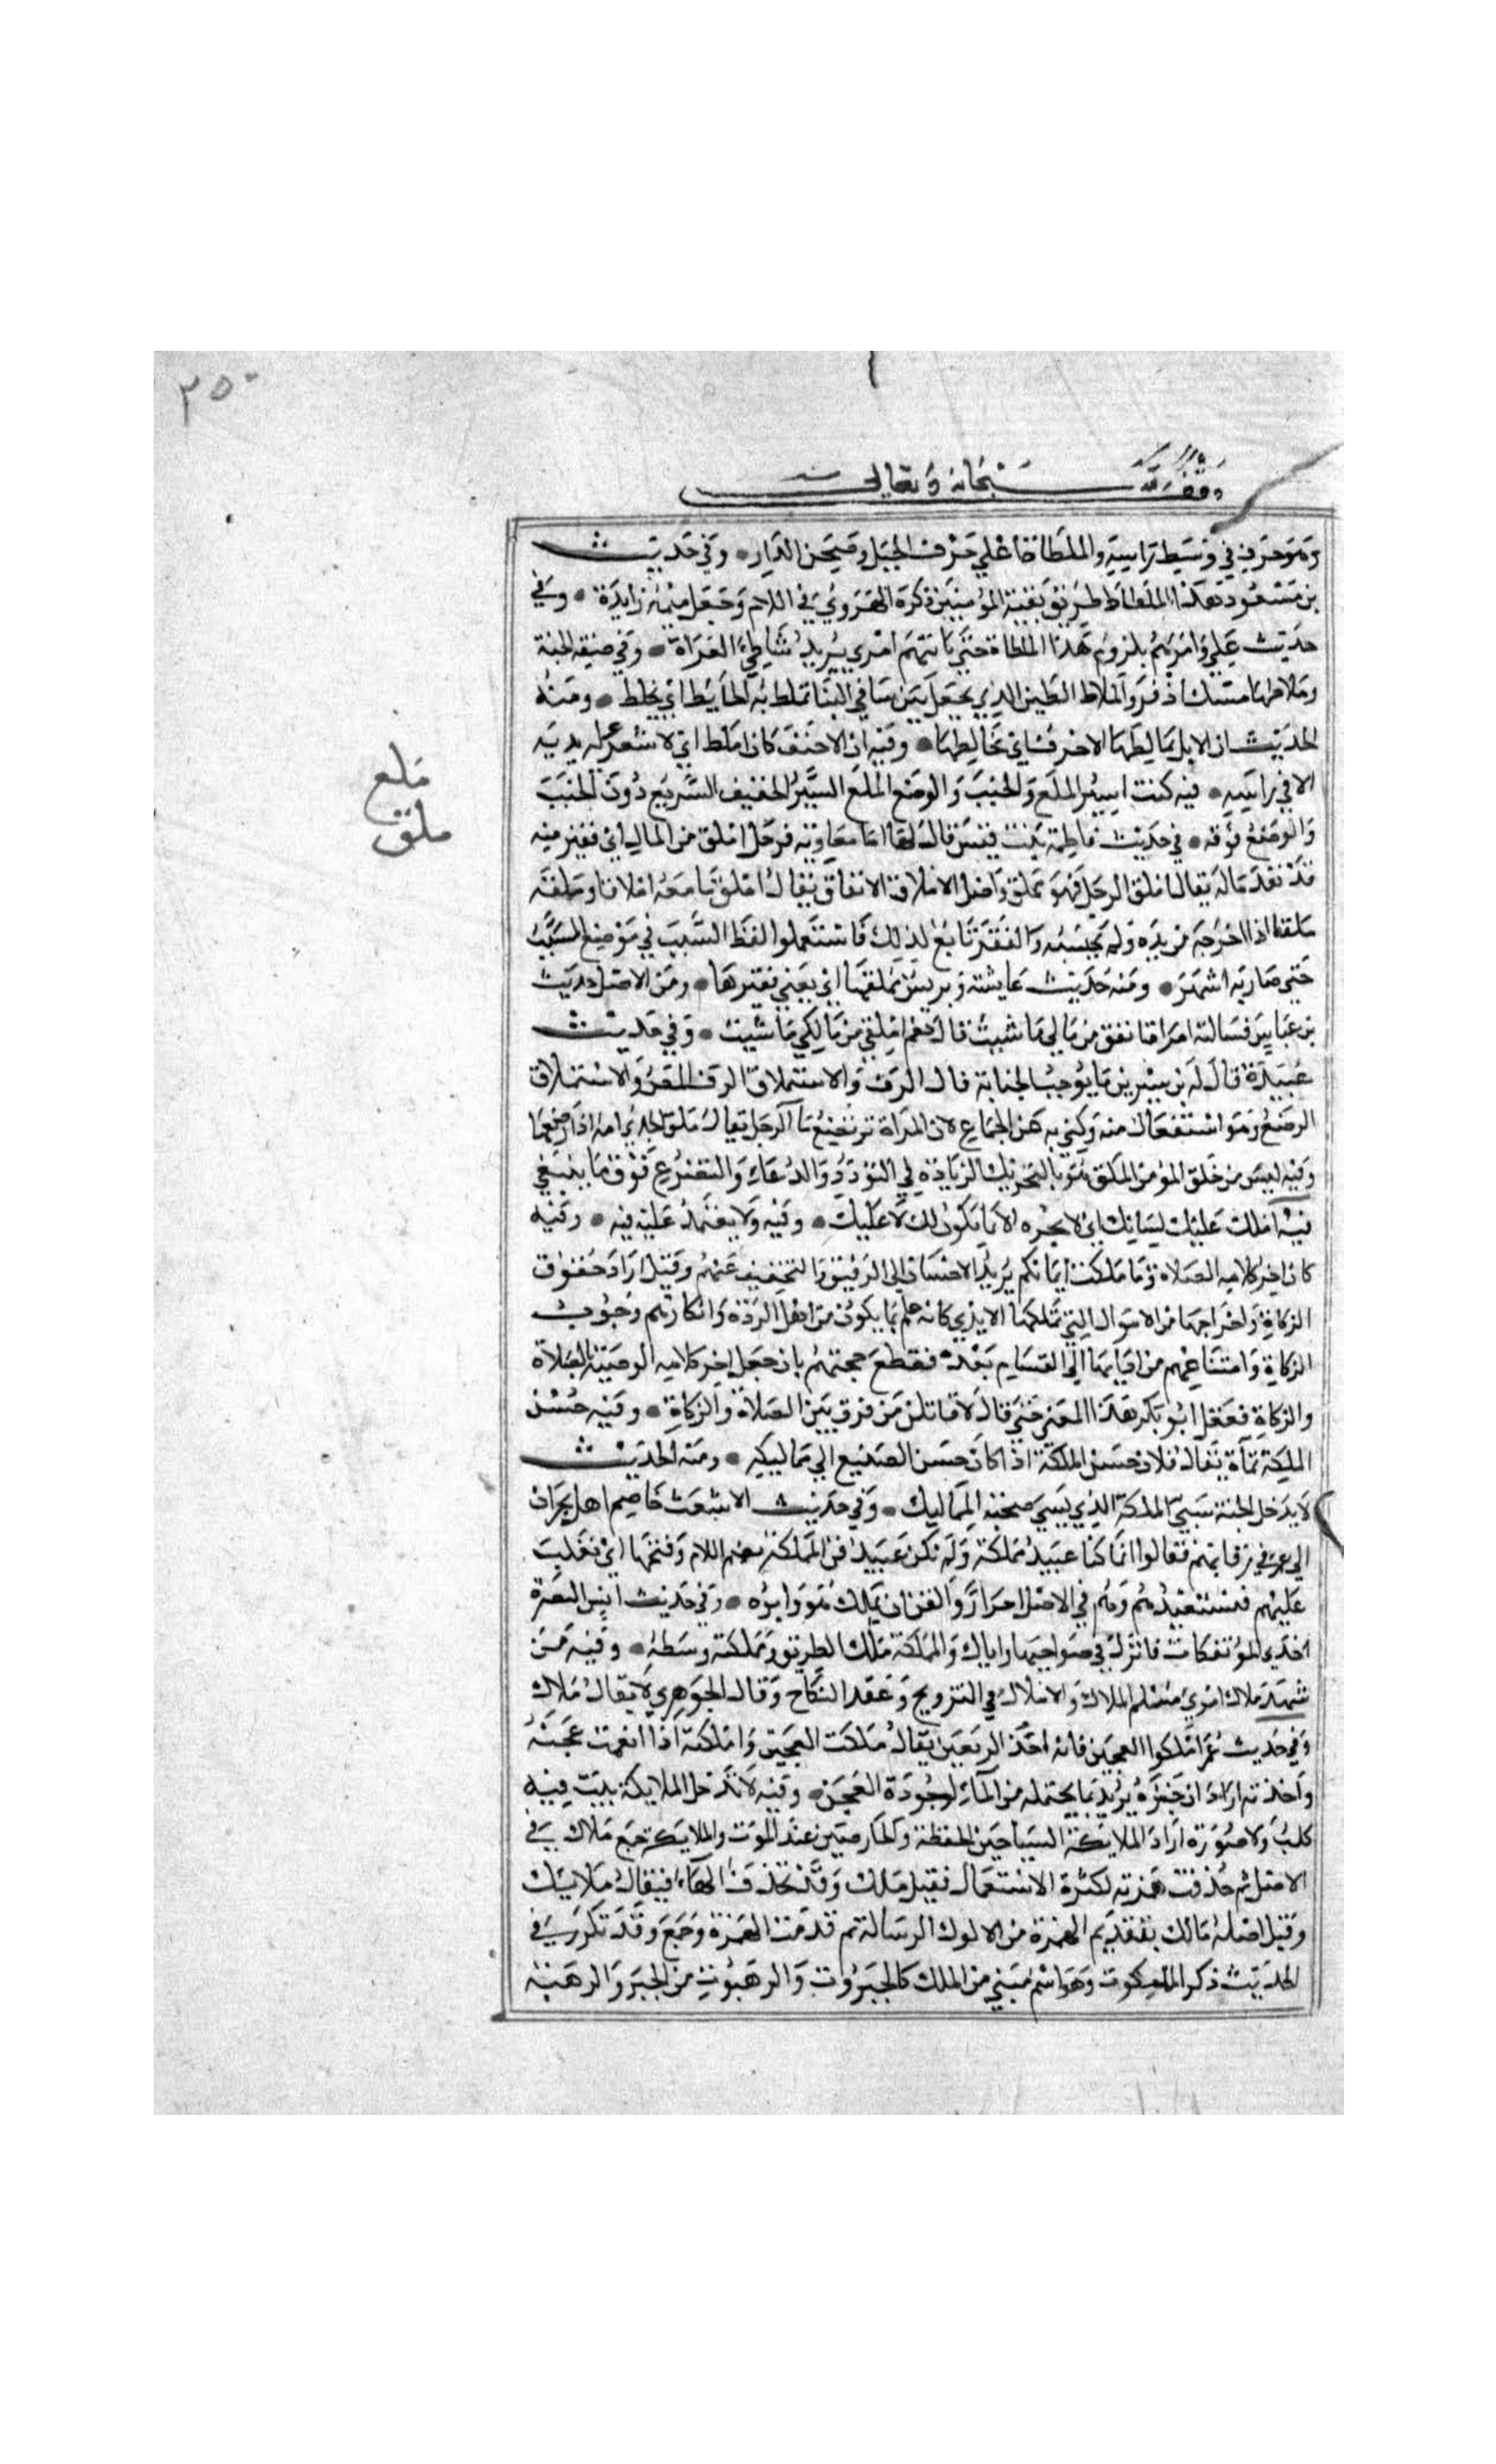 ٢٥٠
وقف لله سبحانه وتعالى
وهو حرف في وسط راسه والملطاة اعلي حرف الجبل وصحن الدار وفي حديث
بن مسعود هذا الملطاط طريق بقية المومنين ذكره الهروي في اللام وجعل ميمه زايدة وفي
حديث علي وامرتهم بلزوم هذا الملطاة حتي ياتيهم امري يريد شاطي الفراة وفي صفة الجنة
وملاطها مسك اذفر والملاط الطين الذي يجعل بين سافي البنا تملط به الحايط اي يخلط ومنه
الحديث ان الابل يمالطها الاجرب اي تخالطها وفيه ان الاحنف كان املط اي لا شعر له بدنه
الا في راسه فيه كنت اسير الملع والخبب والوضع الملع السير الخفيف السريع دون الخبب
والوضع فوقه في حديث فاطمة بنت قيس قال لها اما معاوية فرجل املق من المال اي فقير منه
قد نفد ماله يقال املق الرجل فهو مملق واصل الاملاق الانفاق يقال املق ما معه املاقا وملقه
ملقا اذا اخرجه من يده ولم يحبسه والفقر تابع لذلك فاستعملوا لفظ السبب في موضع المسبب
حتي صار به اشهر ومنه حديث عايشة ويريش مملقها اي يغني فقيرها ومن الاصل حديث
بن عباس فسالته امراة انفق من مالي ما شيت قال نعم املقي من مالكي ماشيت وفي حديث
عبيدة قال له بن سيرين ما يوجب الجنابة قال الرف والاستملاق الرف المص والاستملاق
الرضع وهو استفعال منه وكني به عن الجماع لان المراة ترتضع ما الرجل يقال ملق الجدي امه اذا رضعها
وفيه ليس من خلق المومن الملق هو بالتحريك الزيادة في التودد والدعا والتضرع فوق ما ينبغي
فيه املك عليك لسانك اي لا تجره الا بما يكون لك لا عليك وفيه ولا يعتمد عليه فيه وفيه
كان اخر كلامه الصلاة وما ملكت ايمانكم يريد الاحسان الي الرقيق والتخفيف عنهم وقيل اراد حقوق
الزكاة واخراجها من الاموال التي تملكها الايدي كانه علم بما يكون من اهل الردة وانكارهم وجوب
الزكاة وامتناعهم من اديها الي القسايم بعده فقطع حجتهم بان جعل اخر كلامه الوصية بالصلاة
والزكاة فعقل ابو بكر هذا المعني حتي قال لاقاتلن من فرق بين الصلاة والزكاة وفيه حسن
الملكة نمآء يقال فلان حسن الملكة اذا كان حسن الصنيع الي مماليكه ومنه الحديث
لا يدخل الجنة سيئ الملكة الذي يسي صحبة المماليك وفي حديث الاشعث خاصم اهل نجران
الي عمر في رقابهم فقالوا انما كنا عبيد مملكة ولم نكن عبيد قن المملكة بضم اللام وفتحها اي نغلب
عليهم فنستعبدهم وهم في الاصل احرار والقن ان يملك هو وابوه وفي حديث انس البصرة
احدي المؤتفكات فانزل في ضواحيها واياك والمملكة ملك الطريق ومملكته وسطه وفيه من
شهد ملاك امري مسلم الملاك والاملاك في التزويج وعقد النكاح وقال الجوهري لا يقال ملاك
وفي حديث عمر املكوا العجين فانه احد الريعين يقال ملكت العجين واملكته اذا انعمت عجنه
واجدته اراد ان خبزه يزيد بما يحتمله من الماء لجودة العجن وفيه لا تدخل الملايكة بيت فيه
كلب ولا صورة اراد الملايكة السياحين الحفظة والحاضرين عند الموت والملايكة جمع ملاك في
الاصل ثم حذفت همزته لكثرة الاستعمال فقيل ملك وقد تحذف الهاء فيقال ملايك
وقيل اصله مالك بتقديم الهمزة من الالوك الرسالة ثم قدمت الهمزة وجمع وقد تكرر في
الحديث ذكر الملكوت وهو اسم مبني من الملك كالجبروت والرهبوت من الجبر والرهبة
ملع
ملق